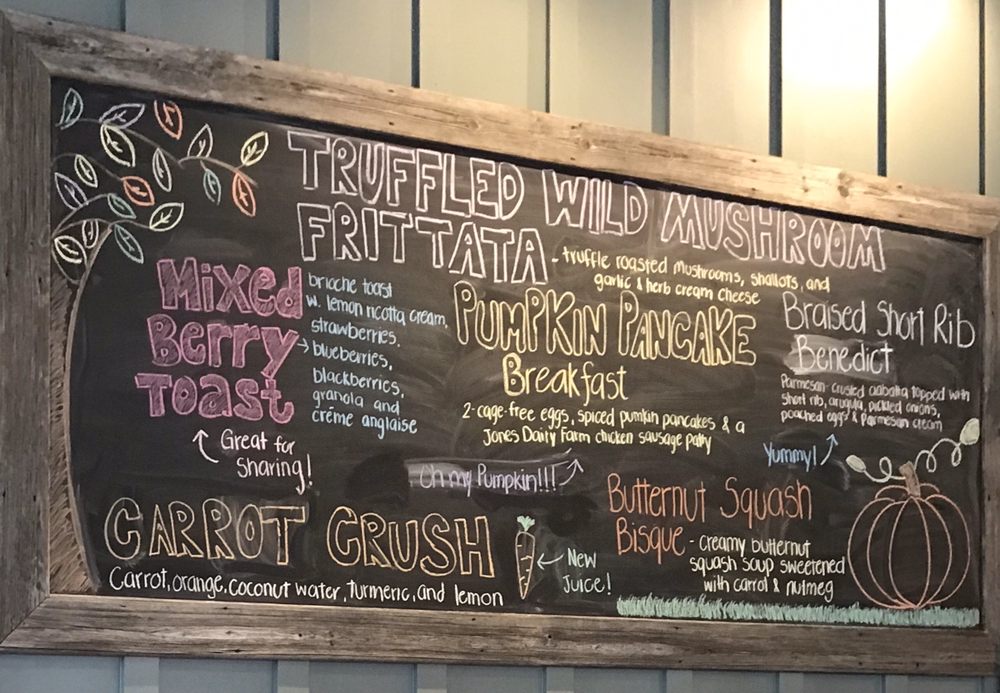 TRUFFLED WILD MUSHROOM
FRITTATA - truffle roasted mushrooms, shallots, and
garlic & herb cream cheese
Mixed
Berry
Toast
brioche toast
w. lemon ricotta cream,
strawberries,
blueberries,
blackberries,
granola and
créme anglaise
Great for
Sharing!
PUMPKIN PANCAKE
Breakfast
2-cage-free eggs, spiced pumkin pancakes & a
Jones Dairy Farm chicken sausage patty
Oh my Pumpkin!!!
Braised Short Rib
Benedict
Parmesan-crusted ciabatta topped with
short rib, arugula, pickled onions,
poached eggs & parmesan cream
Yummy!
CARROT CRUSH
Carrot, orange, coconut water, turmeric, and lemon
New
Juice!
Butternut Squash
Bisque - creamy butternut
squash soup sweetened
with carrot & nutmeg